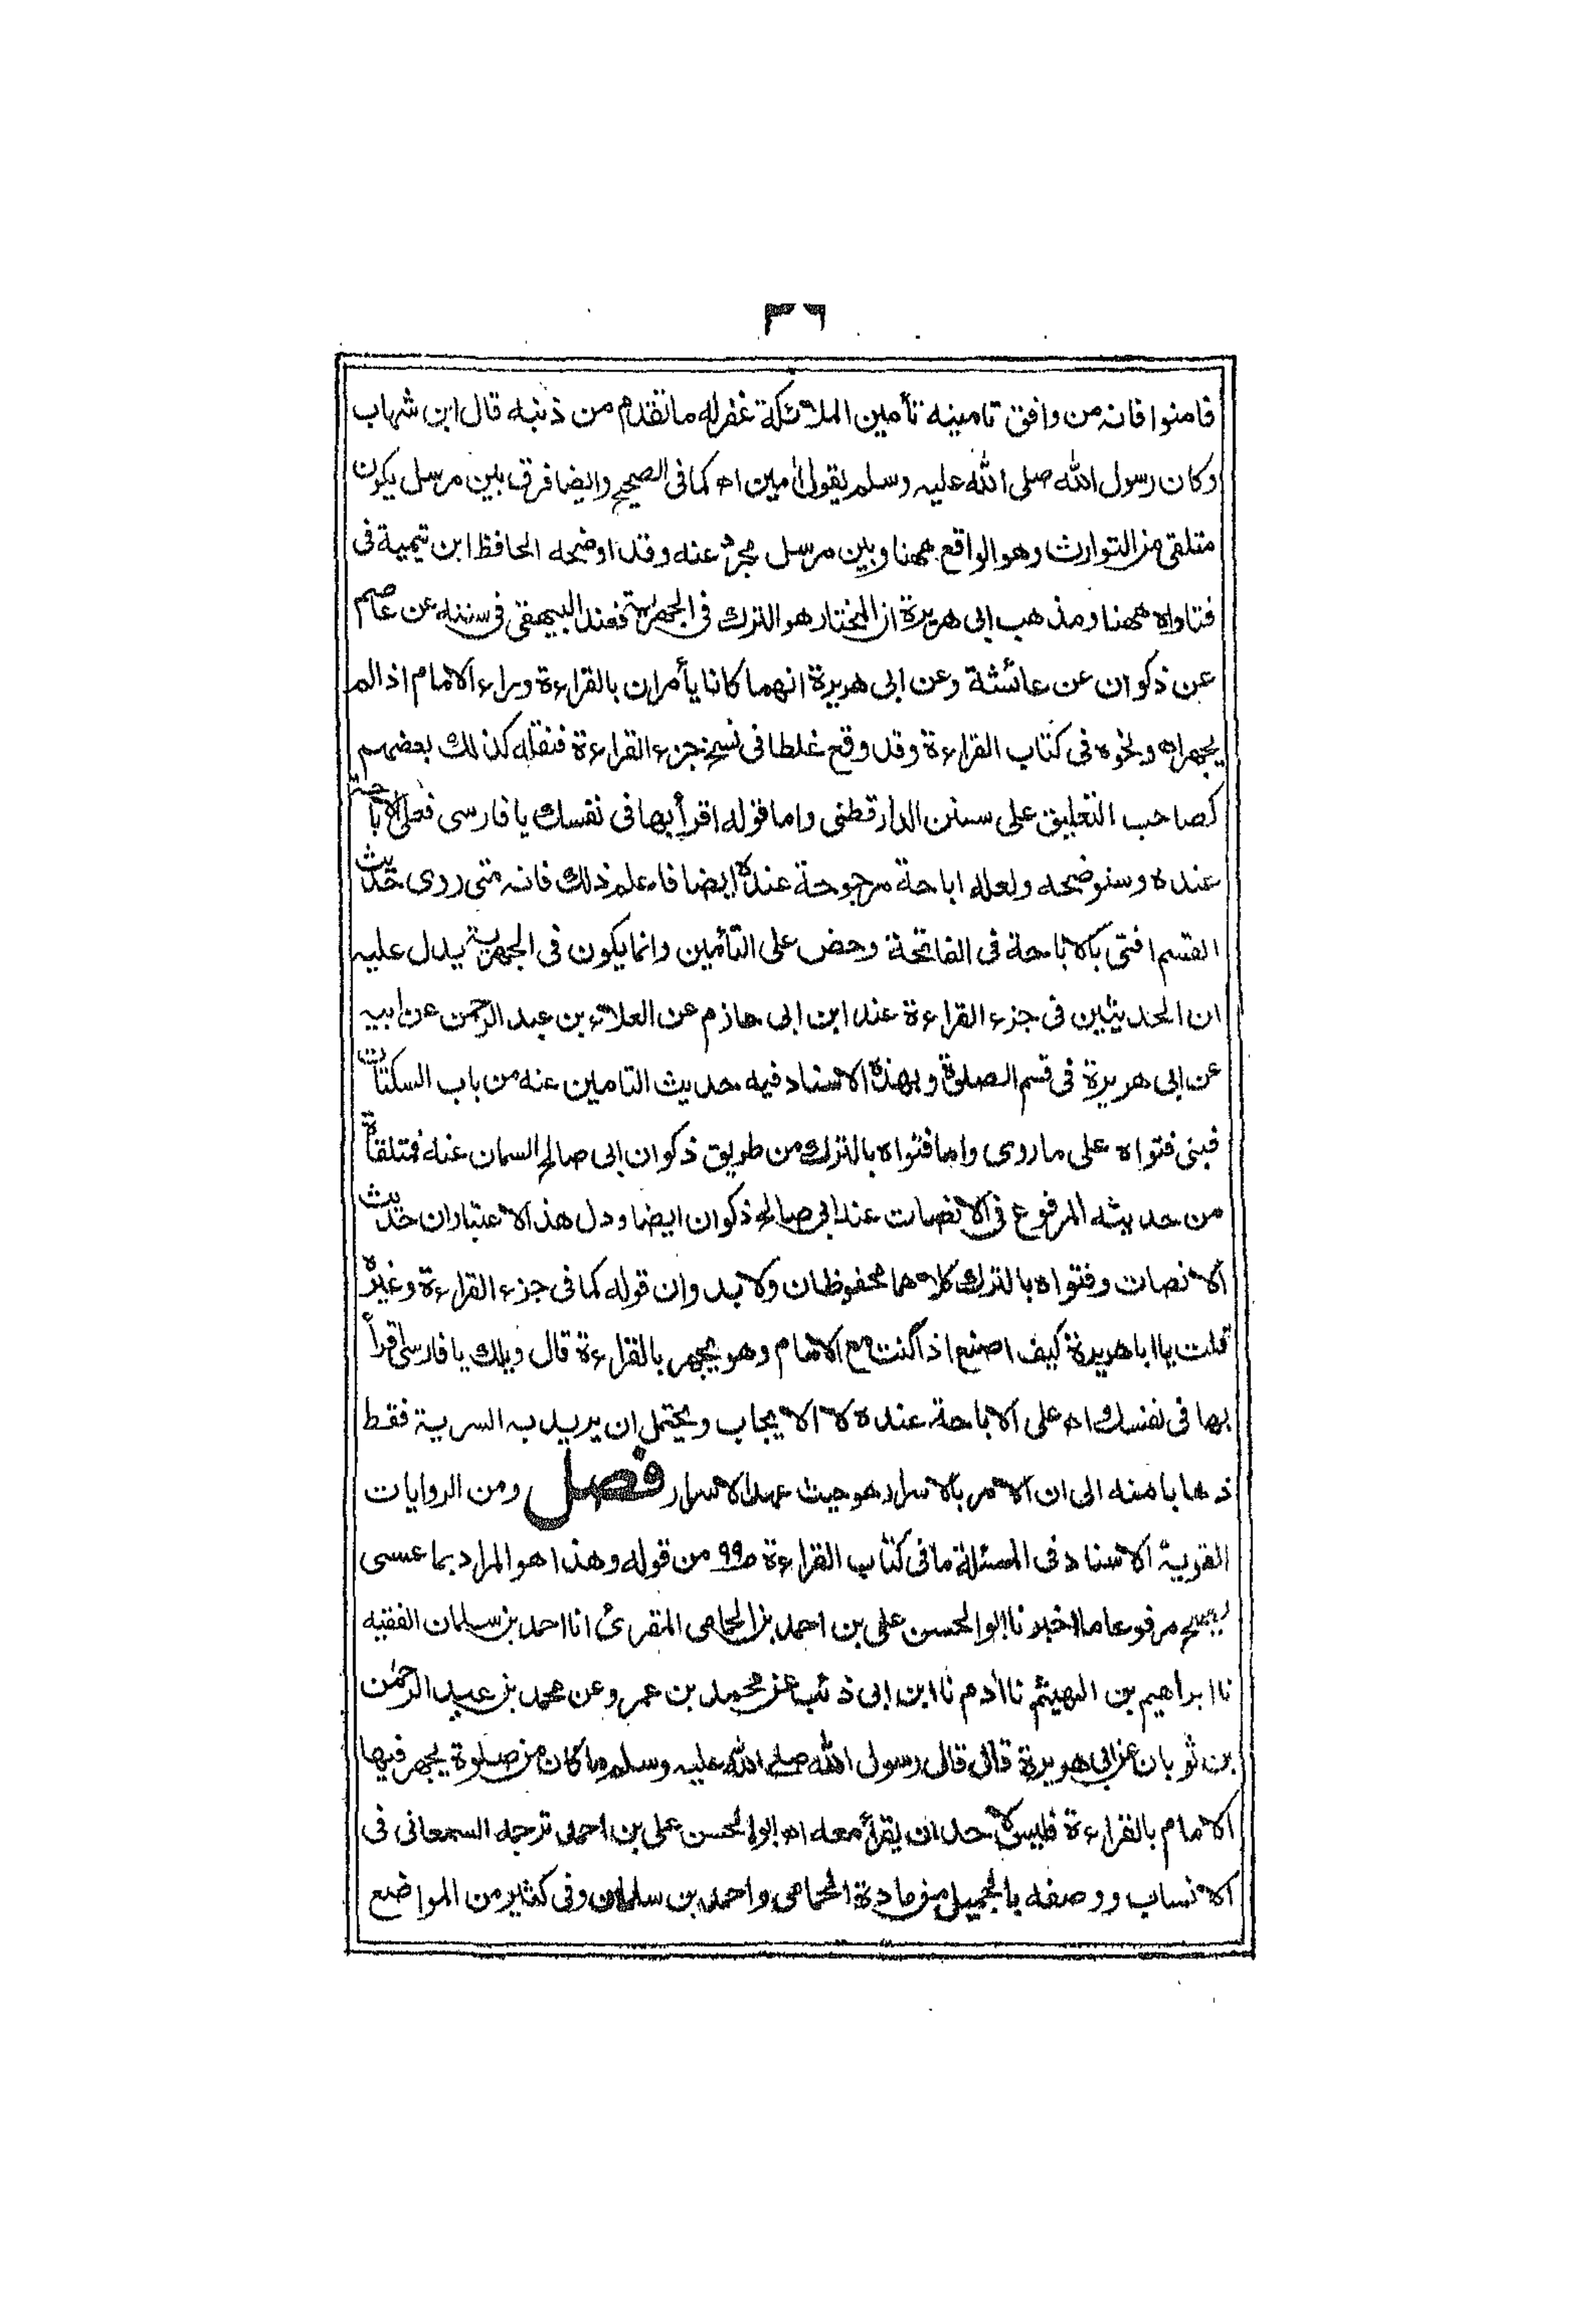 ٣٦
فامنوا فانه من وافق تامينه تأمين الملائكة غفرله ماتقدم من ذنبه قال ابن شهاب
وكان رسول الله صلى الله عليه وسلم يقول اٰمين اھ كما فى الصحيح وايضا فرق بين مرسل يكون
متلقى من التوارث وهو الواقع ههنا وبين مرسل مجرد عنه وقد اوضحه الحافظ ابن تيمية فى
فتاواه ههنا ومذهب ابى هريرة ان المختار هو الترك فى الجهرية فعند البيهقى فى سننه عن عاصم
عن ذكوان عن عائشة وعن ابى هريرة انهما كانا يأمران بالقراءة وراء الامام اذا لم
يجهر اھ ونحوه فى كتاب القراءة وقد وقع غلطا فى نسخ جزء القراءة فنقله كذلك بعضهم
كصاحب التعليق على سنن الدارقطنى واما قوله اقرأ بها فى نفسك يا فارسى فعلى الاباحة
عنده وسنوضحه ولعله اباحة مرجوحة عنده ايضا فاعلم ذلك فانه متى روى حديث
القسم افتى بالاباحة فى الفاتحة وحض على التأمين وانما يكون فى الجهرية يدل عليه
ان الحديثين فى جزء القراءة عند ابن ابى حازم عن العلاء بن عبد الرحمن عن ابيه
عن ابى هريرة فى قسم الصلوة وبهذا الاسناد فيه حديث التامين عنه من باب السكتات
فبنى فتواه على ما روى واما فتواه بالترك من طريق ذكوان ابى صالح السمان عنه فمتلقاة
من حديثه المرفوع فى الانصات عند ابى صالح ذكوان ايضا ودل هذا الاعتبار ان حديث
الانصات وفتواه بالترك كلاهما محفوظان ولابد وان قوله كما فى جزء القراءة وغيره
قلت يا ابا هريرة كيف اصنع اذا كنت مع الامام وهو يجهر بالقراءة قال ويلك يا فارسى اقرأ
بها فى نفسك اھ على الاباحة عنده لا الايجاب ويحتمل ان يريد به السرية فقط
ذهابا منه الى ان الامر بالاسرار هو حيث عهد الاسرار فصل ومن الروايات
القوية الاسناد فى المسئلة ما فى كتاب القراءة ص٩٩ من قوله وهذا هو المراد بما عسى
يصح مرفوعا ما اخبرنا ابو الحسن على بن احمد بن الحمامى المقرئ انا احمد بن سلمان الفقيه
نا ابراهيم بن الهيثم نا اٰدم نا ابن ابى ذئب عن محمد بن عمرو عن محمد بن عبد الرحمٰن
بن ثوبان عن ابى هريرة قال قال رسول الله صلى الله عليه وسلم ما كان من صلوة يجهر فيها
الامام بالقراءة فليس لاحد ان يقرأ معه اھ ابو الحسن على بن احمد ترجمه السمعانى فى
الانساب ووصفه بالجميل من مادة الحمامى واحمد بن سلمان وفى كثير من المواضع